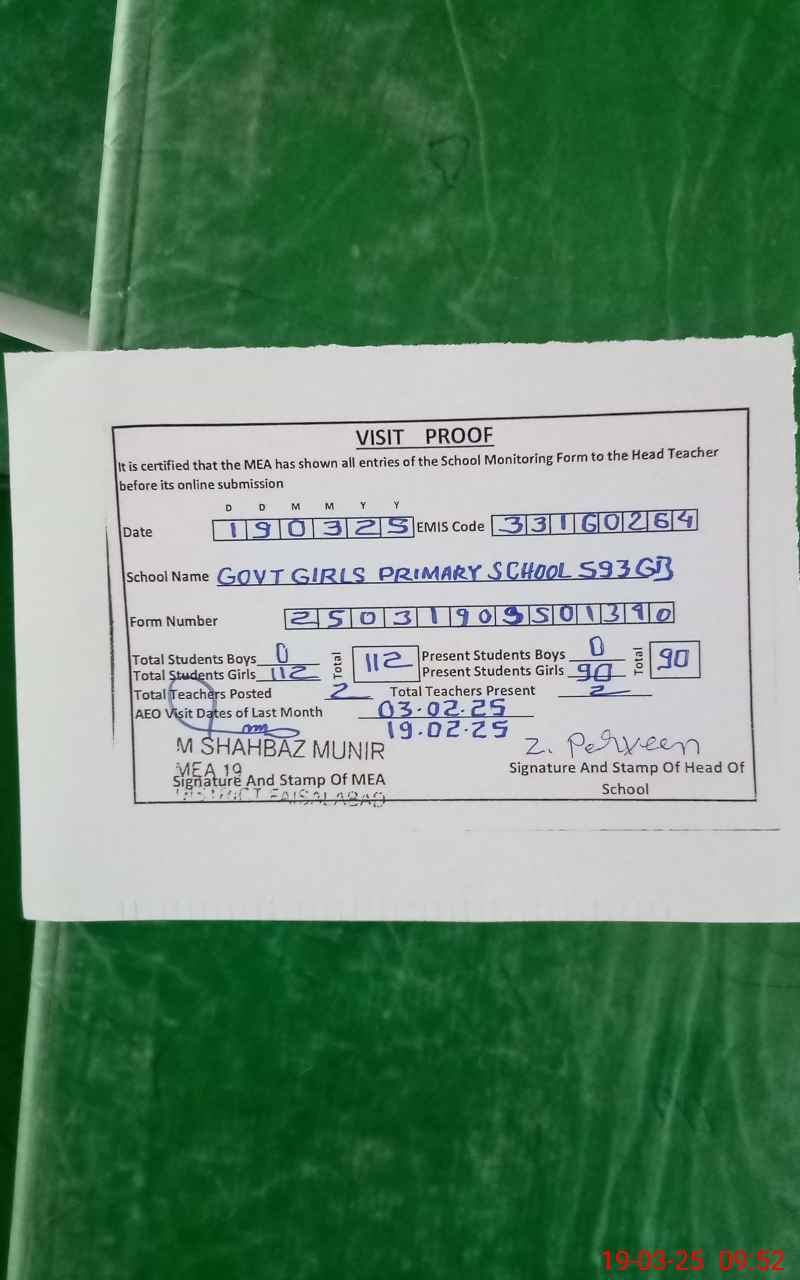 VISIT PROOF
It is certified that the MEA has shown all entries of the School Monitoring Form to the Head Teacher
before its online submission
D D M M Y Y
Date 190325 EMIS Code 33160264
School Name GOVT GIRLS PRIMARY SCHOOL 593GB
Form Number 25031909501390
Total Students Boys 0 Total 112 Present Students Boys 0 Total 90
Total Students Girls 112 Present Students Girls 90
Total Teachers Posted 2 Total Teachers Present 2
AEO Visit Dates of Last Month 03.02.25
19.02.25
M SHAHBAZ MUNIR Z. Perveen
MEA 19
Signature And Stamp Of MEA Signature And Stamp Of Head Of
School
DISTRICT FAISALABAD
19-03-25 09:52